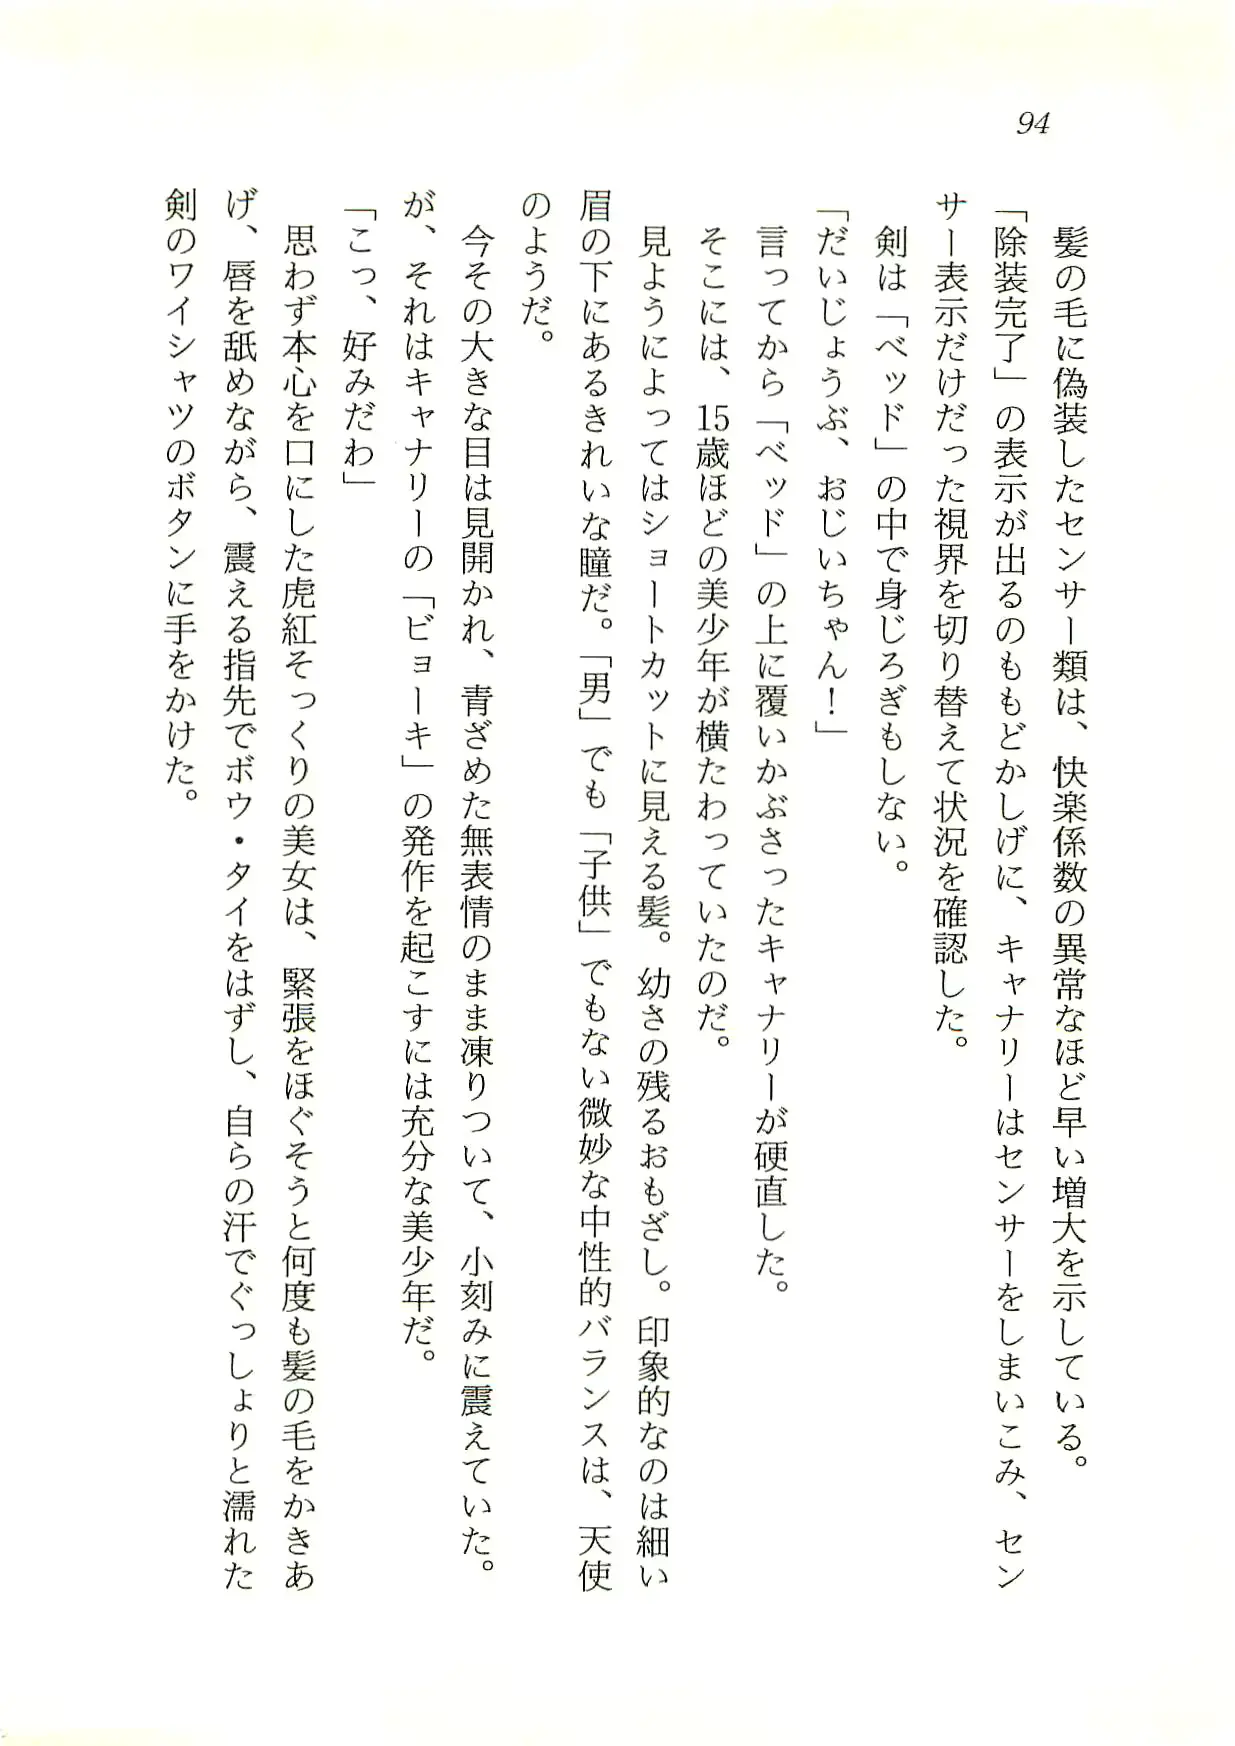 94
髪の毛に偽装したセンサー類は、快楽係数の異常なほど早い増大を示している。
「除装完了」の表示が出るのももどかしげに、キャナリーはセンサーをしまいこみ、セン
サー表示だけだった視界を切り替えて状況を確認した。
剣は「ベッド」の中で身じろぎもしない。
「だいじょうぶ、おじいちゃん！」
言ってから「ベッド」の上に覆いかぶさったキャナリーが硬直した。
そこには、15歳ほどの美少年が横たわっていたのだ。
見ようによってはショートカットに見える髪。幼さの残るおもざし。印象的なのは細い
眉の下にあるきれいな瞳だ。「男」でも「子供」でもない微妙な中性的バランスは、天使
のようだ。
今その大きな目は見開かれ、青ざめた無表情のまま凍りついて、小刻みに震えていた。
が、それはキャナリーの「ビョーキ」の発作を起こすには充分な美少年だ。
「こっ、好みだわ」
思わず本心を口にした虎紅そっくりの美女は、緊張をほぐそうと何度も髪の毛をかきあ
げ、唇を舐めながら、震える指先でボウ・タイをはずし、自らの汗でぐっしょりと濡れた
剣のワイシャツのボタンに手をかけた。